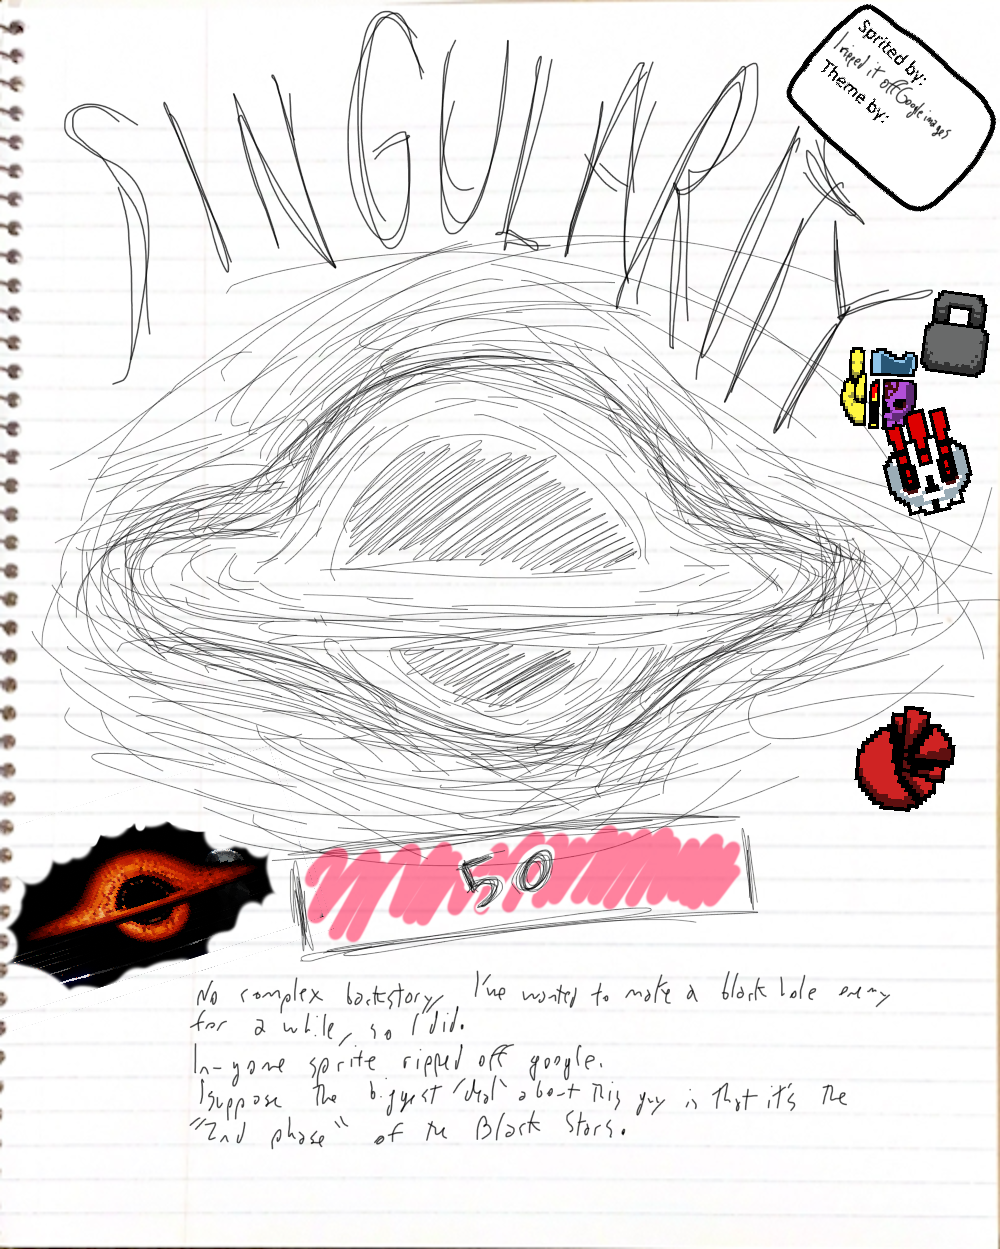 SINGULARITY
Sprited by:
I ripped it off Google images
Theme by:
50
No complex backstory, I've wanted to make a black hole enemy
for a while, so I did.
In-game sprite ripped off google.
I suppose the biggest "deal" about this guy is that it's the
"2nd phase" of the Black Stars.